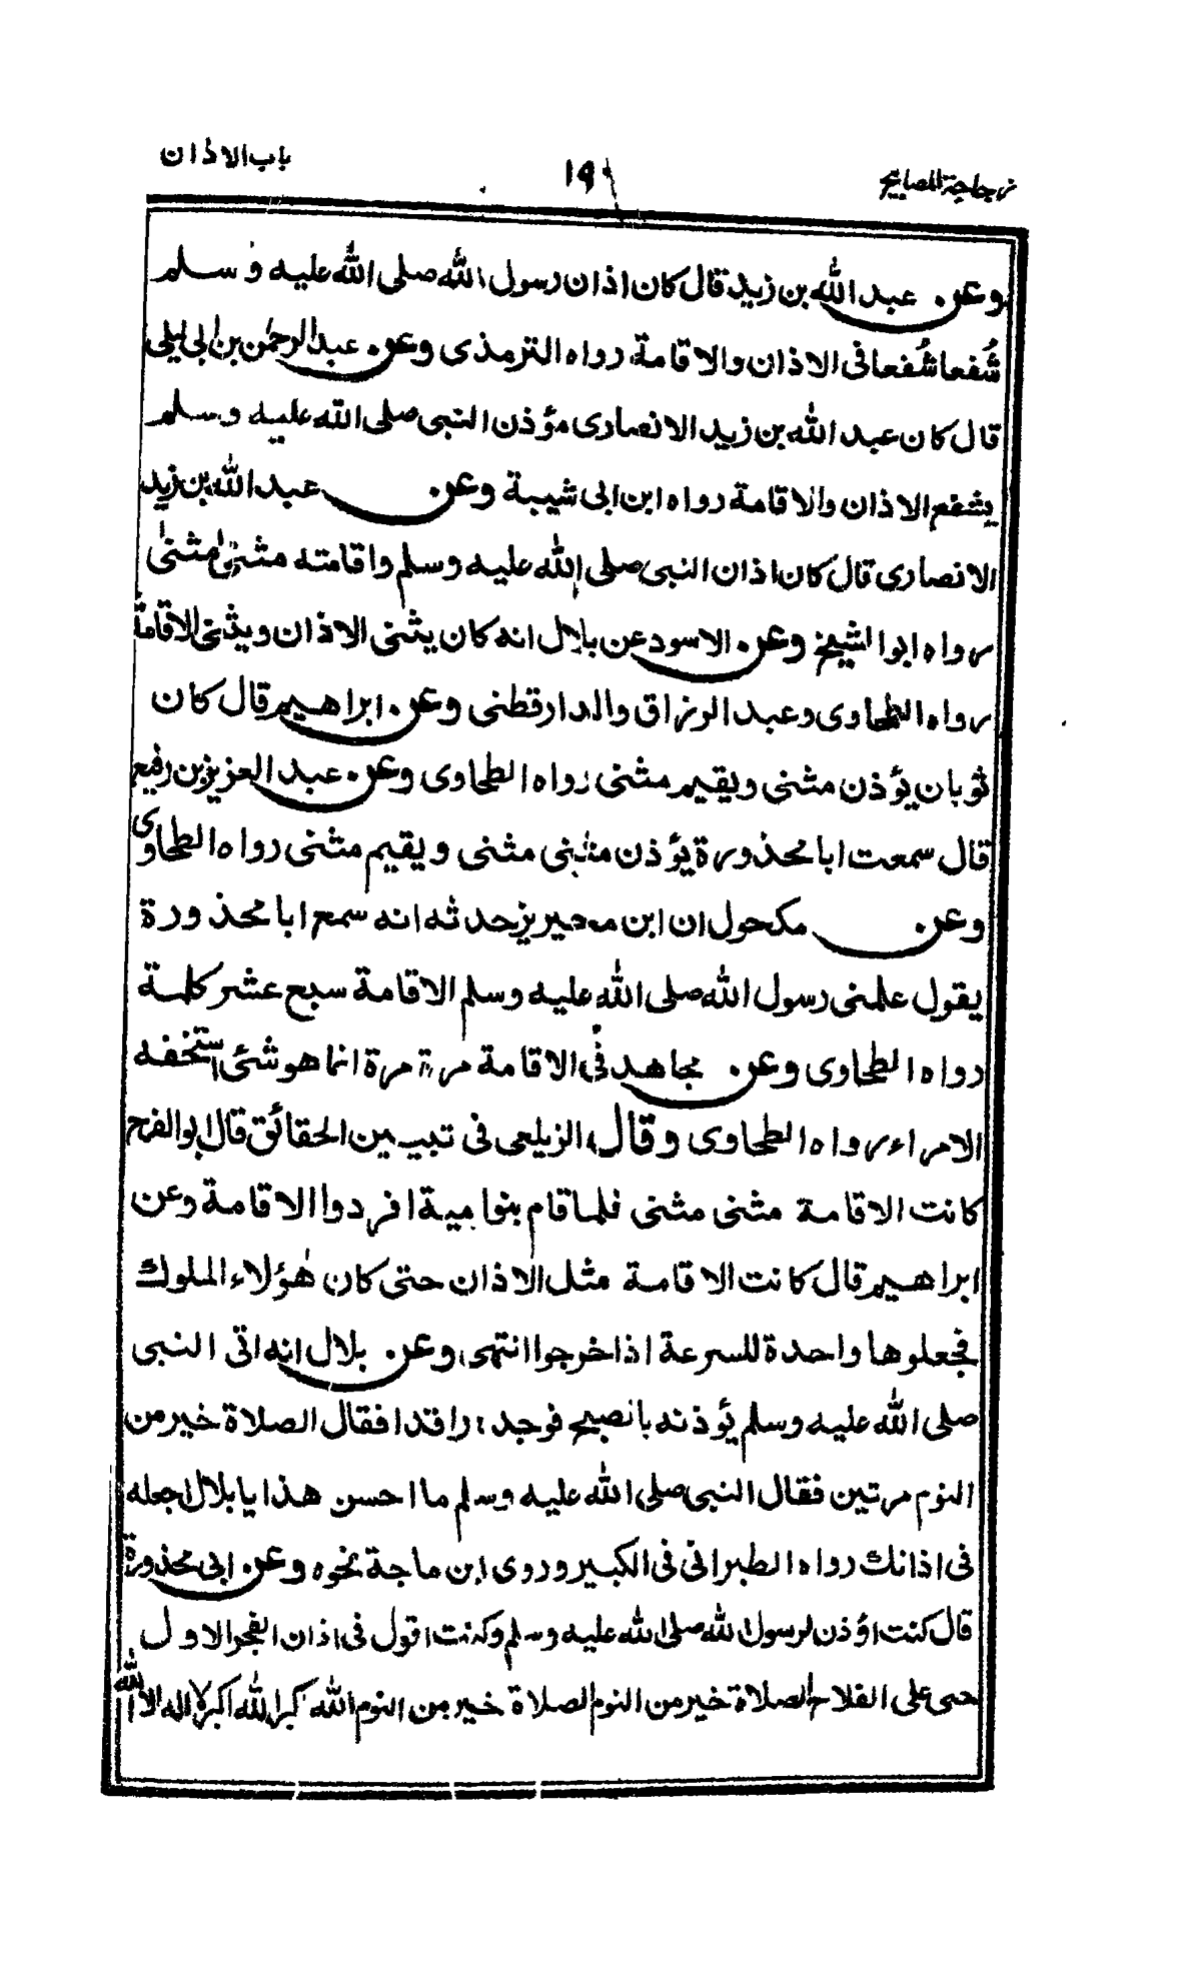 زجاجة المصابيح ١٩١ باب الاذان
وعن عبد الله بن زيد قال كان اذان رسول الله صلى الله عليه وسلم
شُفعا شُفعا فى الاذان والاقامة رواه الترمذى وعن عبد الرحمٰن بن ابى ليلى
قال كان عبد الله بن زيد الانصارى مؤذن النبى صلى الله عليه وسلم
يشفع الاذان والاقامة رواه ابن ابى شيبة وعن عبد الله بن زيد
الانصارى قال كان اذان النبى صلى الله عليه وسلم واقامته مثنىٰ مثنىٰ
رواه ابوا الشيخ وعن الاسود عن بلال انه كان يثنى الاذان ويثنى الاقامة
رواه الطحاوى وعبد الرزاق والدارقطنى وعن ابراهيم قال كان
ثوبان يؤذن مثنى ويقيم مثنى رواه الطحاوى وعن عبد العزيز بن رفيع
قال سمعت ابا محذورة يؤذن مثنى مثنى ويقيم مثنى رواه الطحاوى
وعن مكحول ان ابن محيريز حدثه انه سمع ابا محذورة
يقول علمنى رسول الله صلى الله عليه وسلم الاقامة سبع عشر كلمة
رواه الطحاوى وعن مجاهد فى الاقامة مرة مرة انما هو شئى استخفه
الامراء رواه الطحاوى وقال الزيلعى فى تبيين الحقائق قال ابو الفرح
كانت الاقامة مثنى مثنى فلما قام بنوا مية افردوا الاقامة وعن
ابراهيم قال كانت الاقامة مثل الاذان حتى كان هٰؤلاء الملوك
فجعلوها واحدة للسرعة اذا خرجوا انتهى، وعن بلال انه اتى النبى
صلى الله عليه وسلم يؤذنه بالصبح فوجده راقدا فقال الصلاة خير من
النوم مرتين فقال النبى صلى الله عليه وسلم ما احسن هذا يا بلال اجعله
فى اذانك رواه الطبرانى فى الكبير وروى ابن ماجة نحوه وعن ابى محذورة
قال كنت اؤذن لرسول الله صلى الله عليه وسلم وكنت اقول فى اذان الفجر الاول
حى على الفلاح الصلاة خير من النوم الصلاة خير من النوم الله اكبر الله اكبر لا اله الا الله